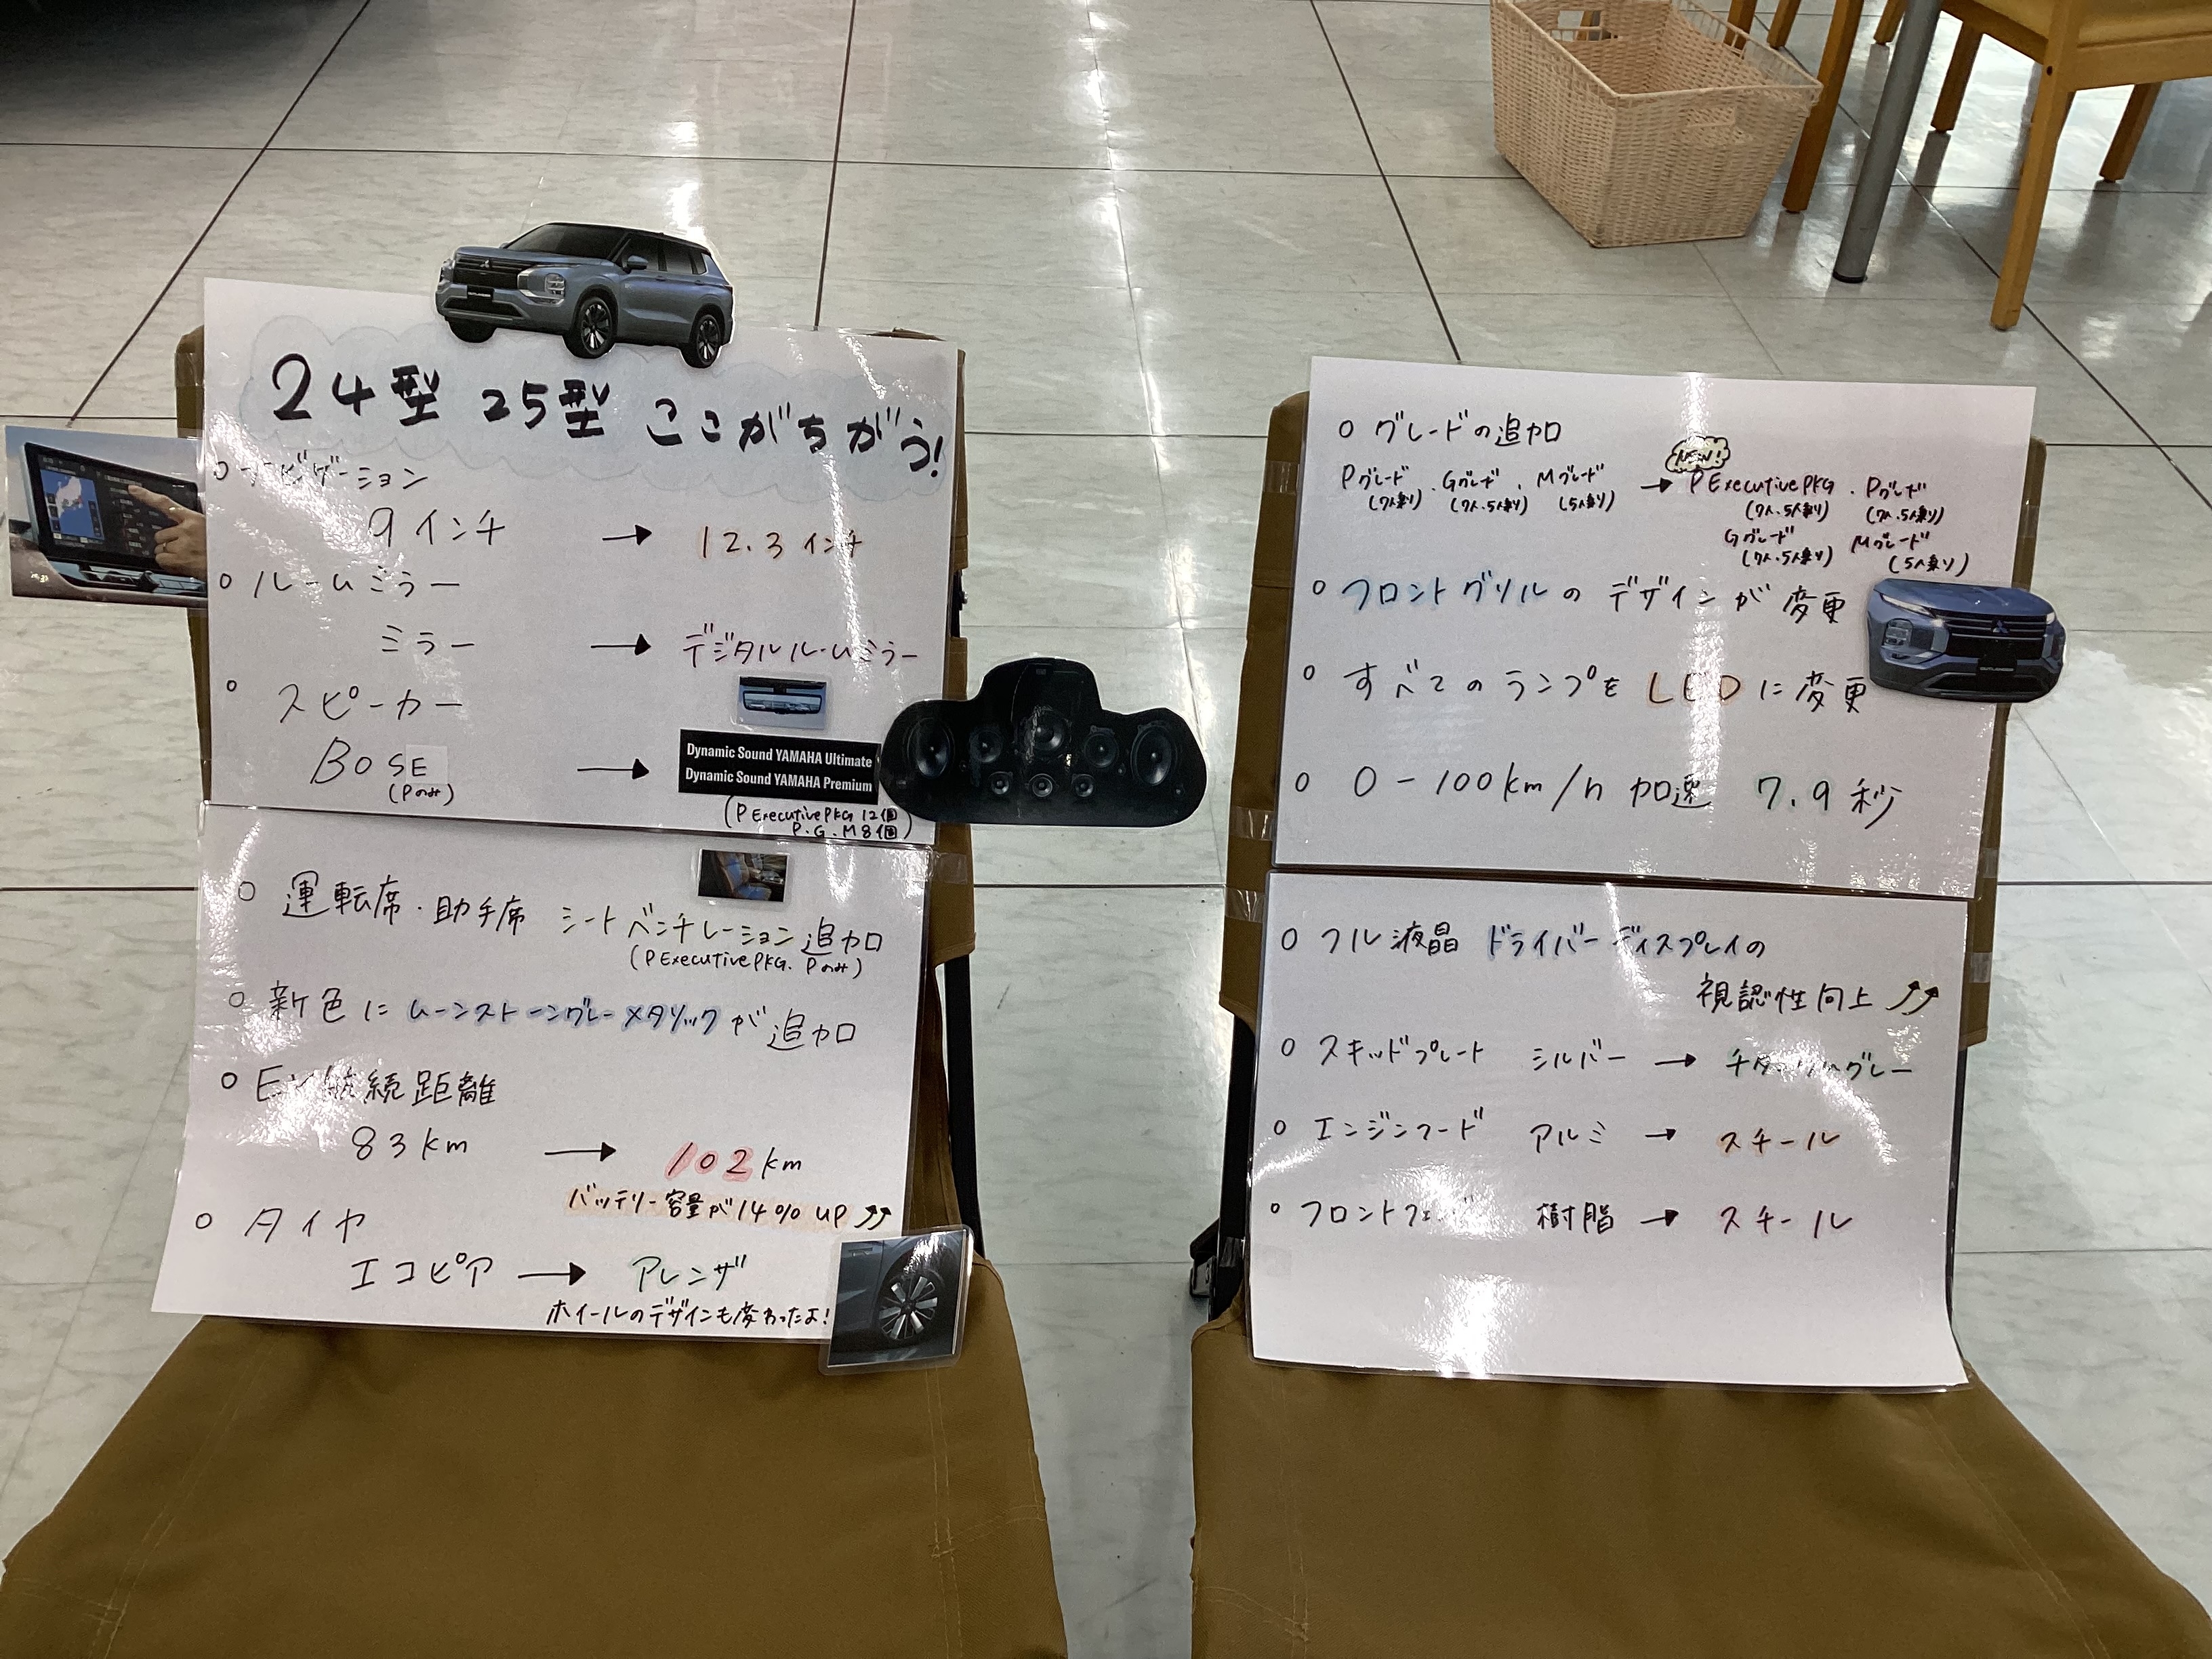 24型 25型 ここがちがう!
○ ナビゲーション
9インチ → 12.3インチ
○ ルームミラー
ミラー → デジタルルームミラー
○ スピーカー
BOSE → Dynamic Sound YAMAHA Ultimate
Dynamic Sound YAMAHA Premium
(Pのみ)
(P Executive PKG 12個
P.G.M 8個)
○ 運転席・助手席 シートベンチレーション追加
(P Executive PKG. Pのみ)
○ 新色に ムーンストーングレーメタリックが追加
○ EV航続距離
83km → 102km
バッテリー容量が14% UP
○ タイヤ
エコピア → アレンザ
ホイールのデザインも変わったよ!
○ グレードの追加
NEW
Pグレード・Gグレード・Mグレード → P Executive PKG・Pグレード
(7人乗り) (7人・5人乗り) (5人乗り) (7人・5人乗り) (7人・5人乗り)
Gグレード Mグレード
(7人・5人乗り) (5人乗り)
○ フロントグリルのデザインが変更
○ すべてのランプをLEDに変更
○ 0-100km/h 加速 7.9秒
○ フル液晶 ドライバーディスプレイの
視認性向上
○ スキッドプレート シルバー → チタニウムグレー
○ エンジンフード アルミ → スチール
○ フロントフェンダー 樹脂 → スチール